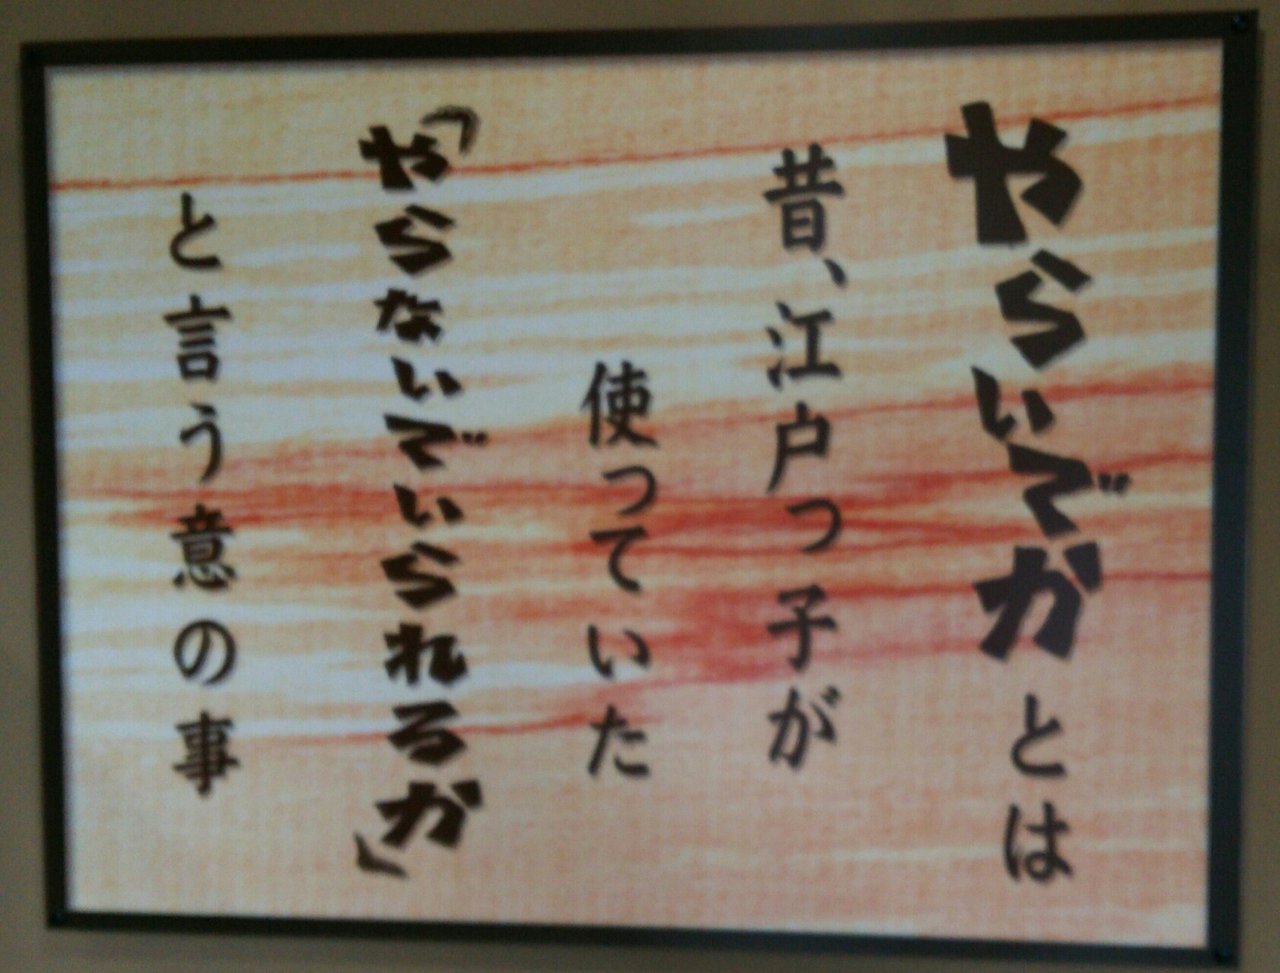 やらいでかとは
昔、江戸っ子が
使っていた
「やらないでいられるか」
と言う意の事